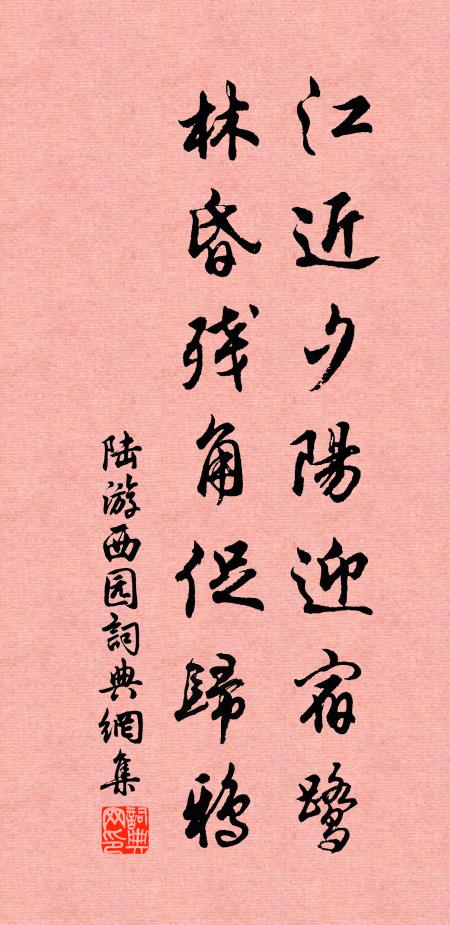 江近夕陽迎宿鷺
林昏残角促歸鴉
陆游西园詞典網集
詞典
网印